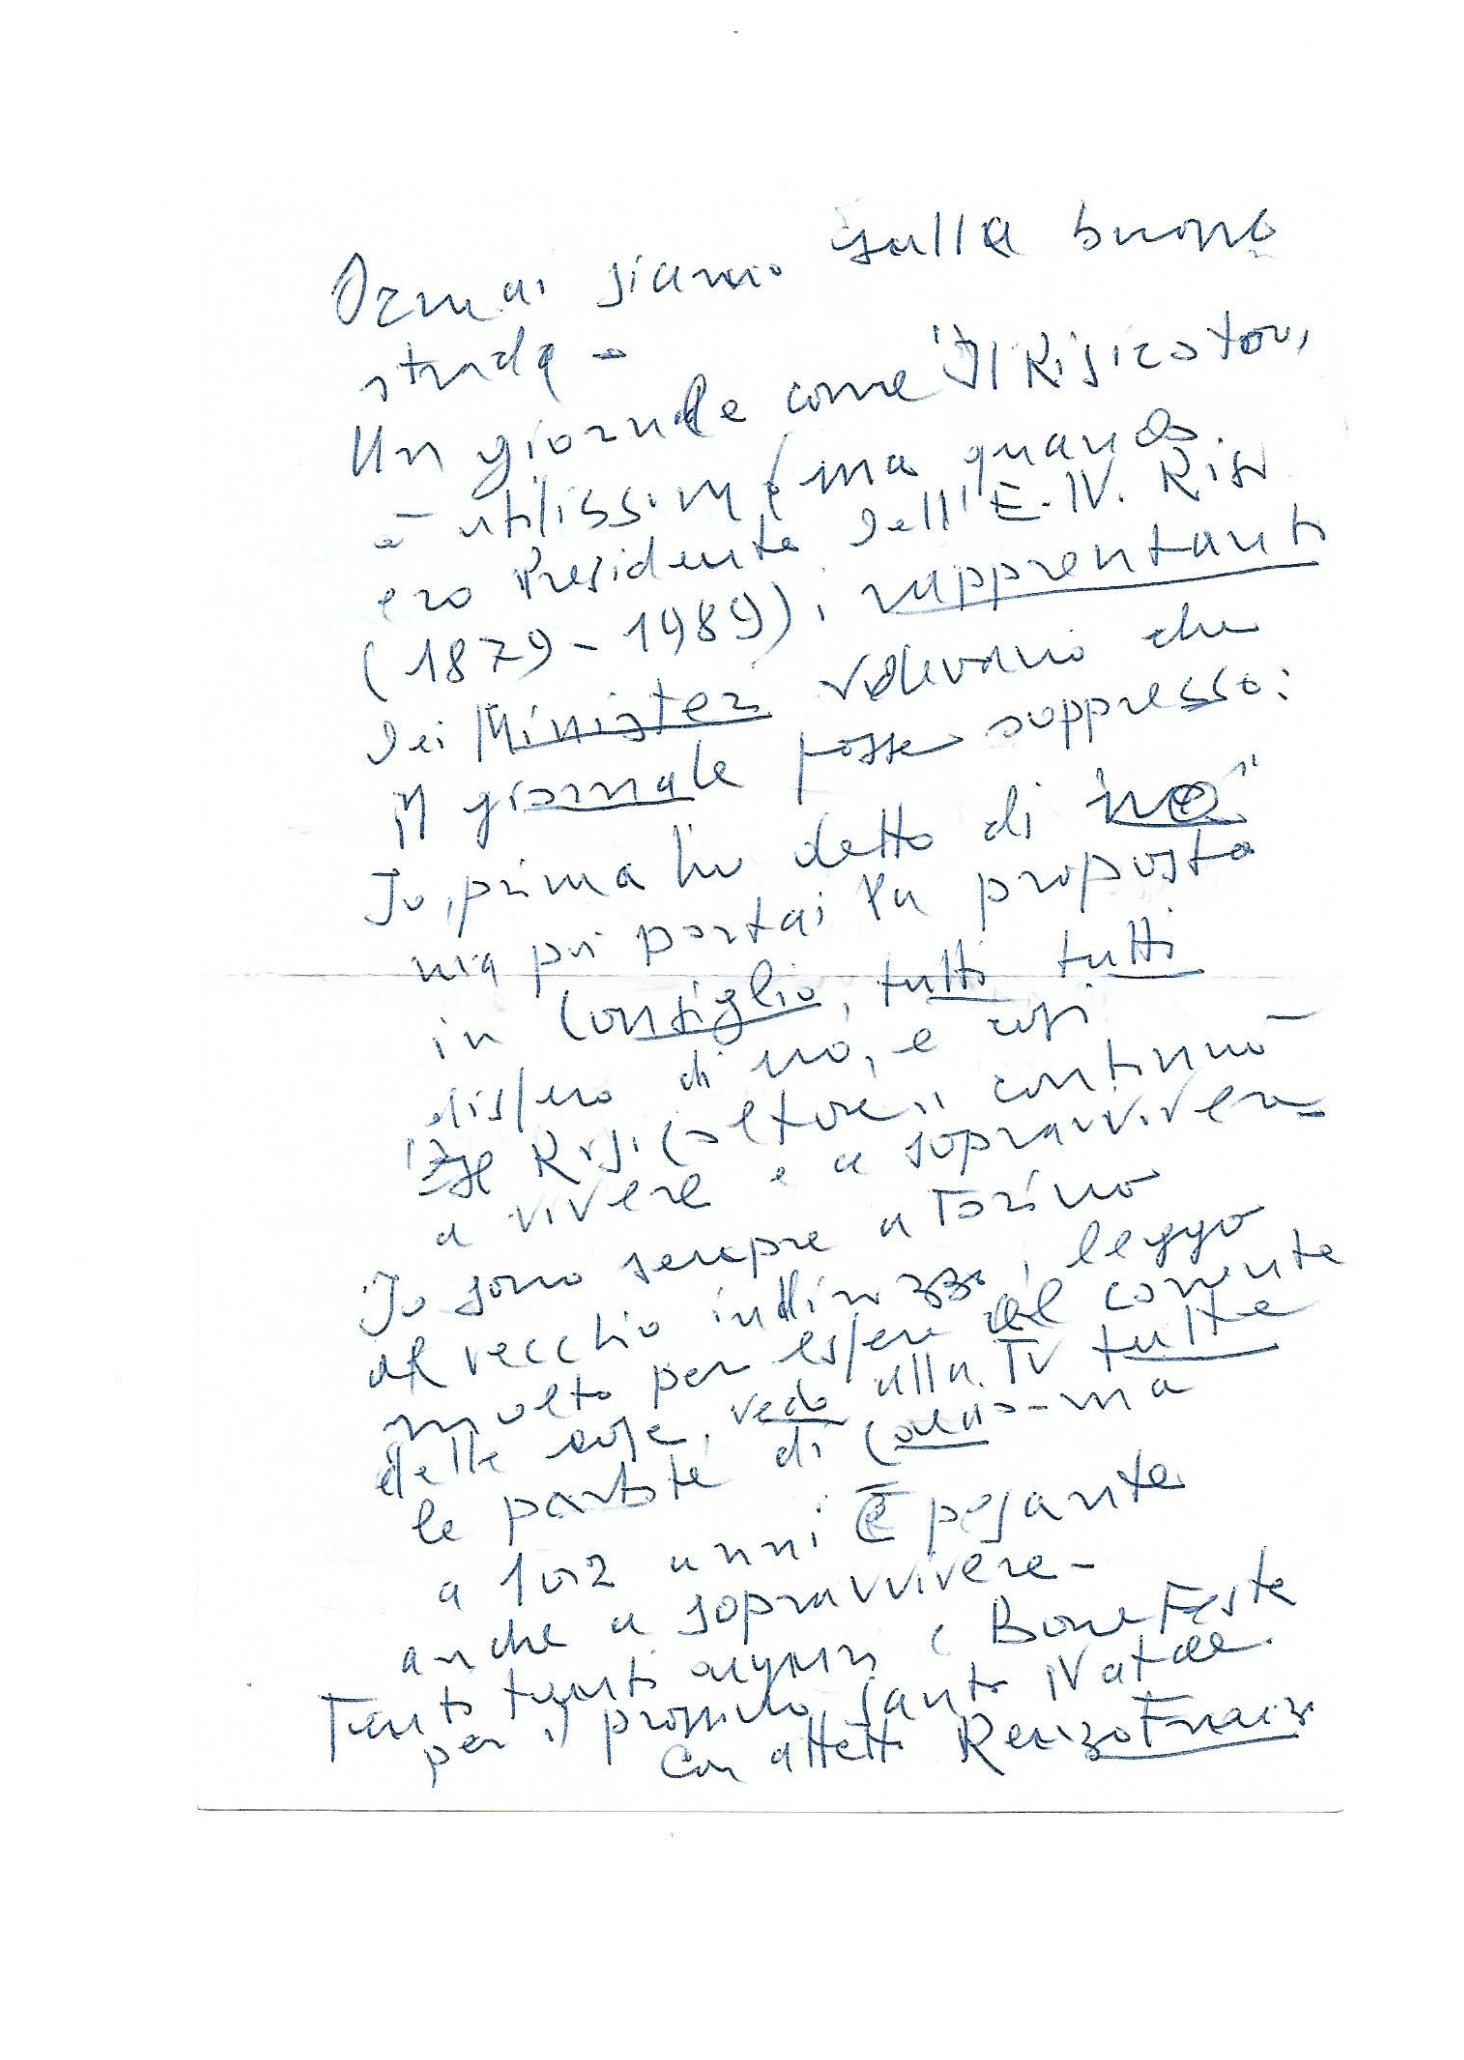 Ormai siamo sulla buona
strada -
Un giornale come "Il Risicoltor,
è utilissim, ma quando
ero Presidente dell' E. N. Risi
(1879-1989), i rapprentanti
dei Minister volevano che
il giornale fosse suppresso:
Io, prima ho detto di "no"
ma poi portai la proposta
in Consiglio, tutti tutti
dissero di no, e così
"Il Risicoltore" continuò
a vivere e a sopravvivere
Io sono sempre a Torino
al vecchio indirizzo, leggo
molto per essere al corrente
delle cose, vedo alla TV tutte
le partite di Calcio - ma
a 102 anni È pesante
anche a sopravvivere -
Tanti tanti auguri e Bone Feste
per il prossimo Santo Natale.
Con affetto Renzo Franzo